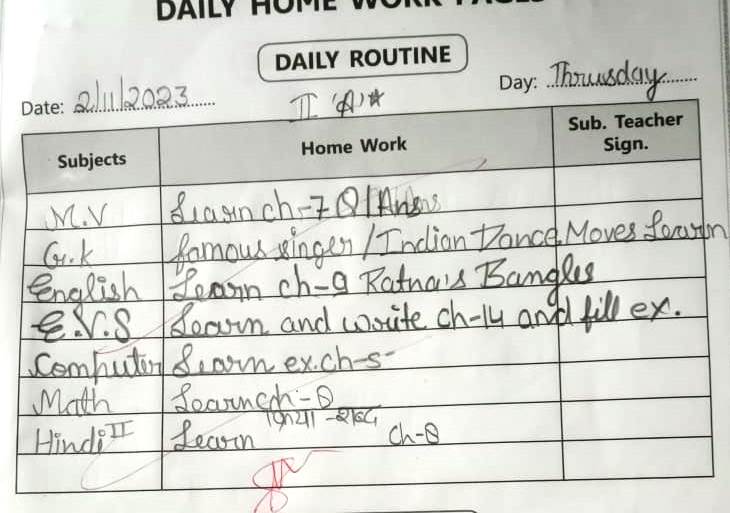 DAILY HOME WORK PAGES
DAILY ROUTINE
Date: 2/11/2023 Day: Thrusday
II 'A'
Subjects Home Work Sub. Teacher Sign.
M.V Learn ch-7 Q/Ans
G.k famous singer/Indian Dance Moves Learn
English Learn ch-9 Ratna's Bangles
E.V.S Learn and write ch-14 and fill ex.
Computer Learn ex.ch-5
Math Learn ch-8
Hindi II Learn ch-8